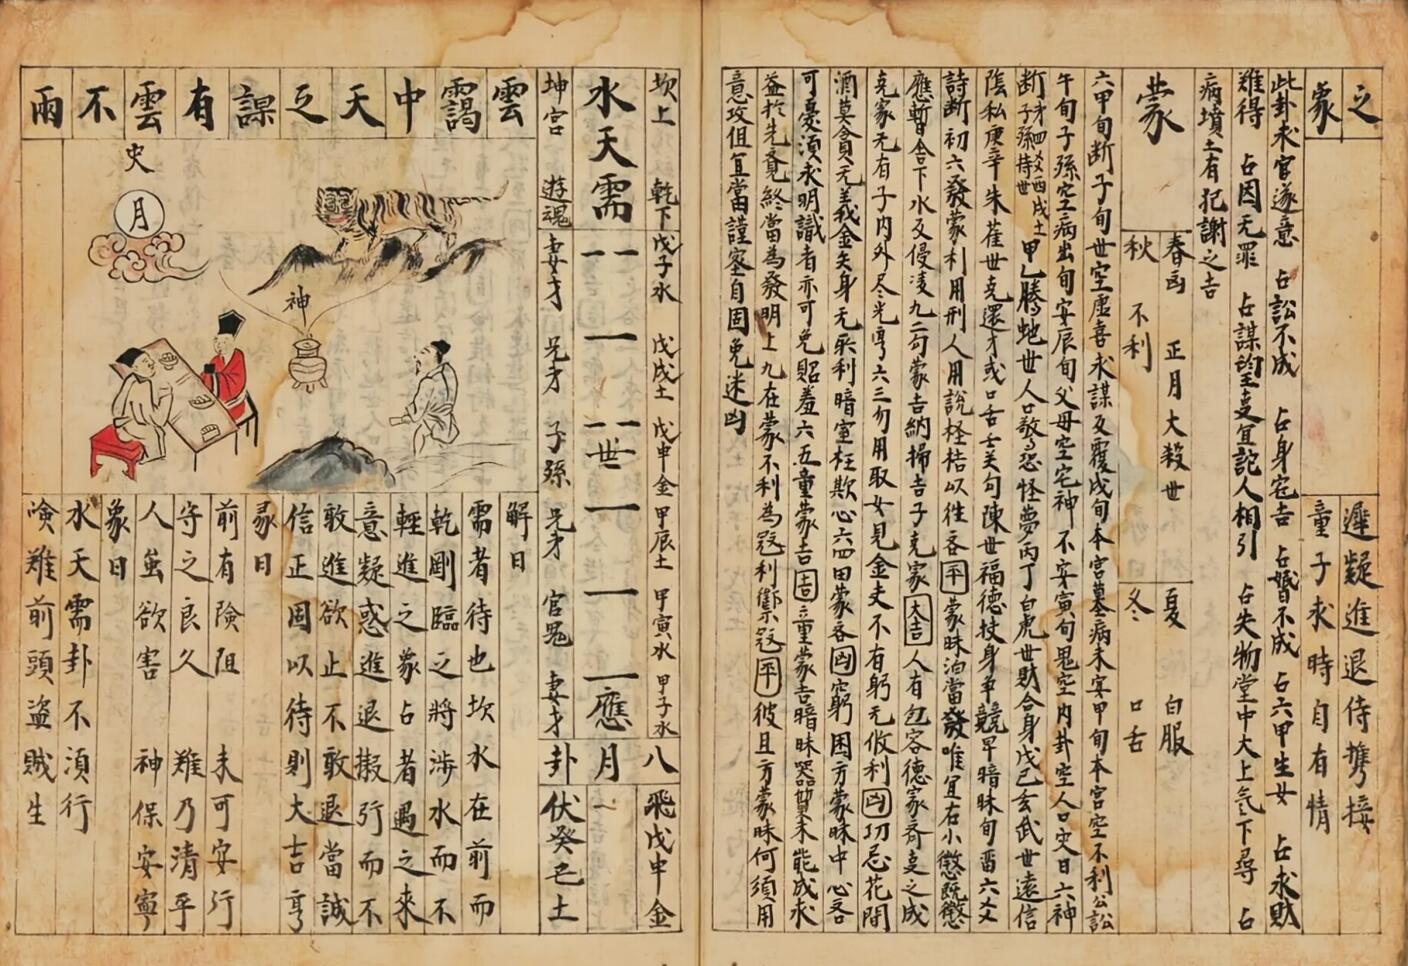 之
象
遲疑進退待携接
童子求時自有情
此卦求官遂意 占訟不成 占身宅吉 占婚不成 占六甲生女 占求財
難得 占囚无罪 占謀望更宜託人相引 占失物堂中大上气下尋 占
病墳土有犯謝之吉
蒙
春凶 正月大殺世
秋 不利
夏 白服
冬 口舌
六甲旬断子旬世空虛喜求謀反覆戌旬本宮墓病未安甲旬本宮空不利公訟
午旬子孫空病出旬安辰旬父母空宅神不安寅旬鬼空内卦空人口灾日六神
断 子孫持世 甲乙騰虵世人口驚恐怪夢丙丁白虎世財合身戊己玄武世遠信
陰私庚辛朱雀世克還才或口舌壬癸句陳世福德扶身爭競早暗昧旬酉六爻
詩断初六發蒙利用刑人用說桎梏以徃吝平蒙昧泊當發唯宜右小懲既懲
應暫舍下水反侵凌九二勾蒙吉納掃吉子克家大吉人有包容德家齊更之成
克家无有子内外尽光亨六三勿用取女見金夫不有躬无攸利凶切忌花間
酒莫貪无義金矢身无所利暗室枉欺心六四困蒙吝凶窮困方蒙昧中心吝
可憂須求明識者亦可免貽羞六五童蒙吉吉童蒙吉暗昧器質未能成求
益於先竟終當為發明上九在蒙不利為寇利禦寇平彼且方蒙昧何須用
意攻但宜當謹密自固免迷凶
坎上 乾下 戊子水 戊戌土 戊申金 甲辰土 甲寅水 甲子水
水天需
世
應
坤宮 遊魂 妻才 兄才 子孫 兄才 官鬼 妻才
八月卦
飛戊申金
伏癸丑土
雲靄中天之謀有雲不雨
灾
月
神
解曰
需者待也坎水在前而
乾剛臨之將涉水而不
輕進之象占者遇之來
意疑惑進退擬行而不
敢進欲止不敢退當誠
信正固以待則大吉亨
彖曰
前有険阻 未可安行
守之良久 難乃清平
人虽欲害 神保安寧
象曰
水天需卦不須行
険難前頭盜賊生